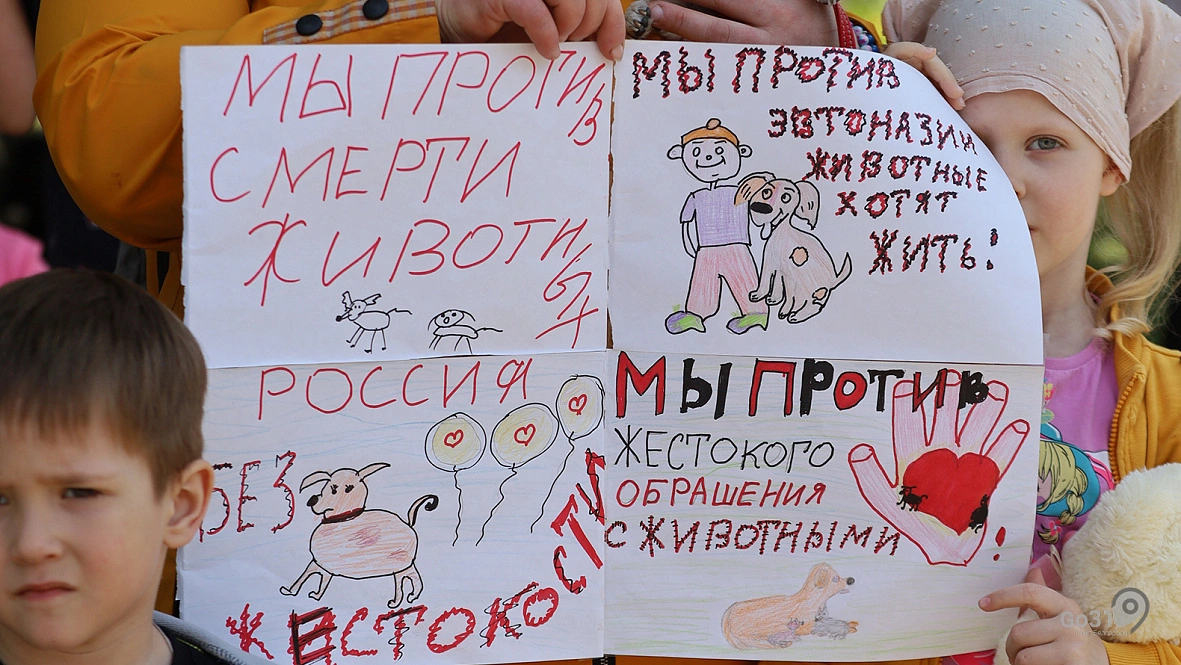 МЫ ПРОТИВ
СМЕРТИ
ЖИВОТНЫХ
МЫ ПРОТИВ
ЭВТОНАЗИИ
ЖИВОТНЫЕ
ХОТЯТ
ЖИТЬ!
РОССИЯ
БЕЗ
ЖЕСТОКОСТИ
МЫ ПРОТИВ
ЖЕСТОКОГО
ОБРАЩЕНИЯ
С ЖИВОТНЫМИ!
Go31